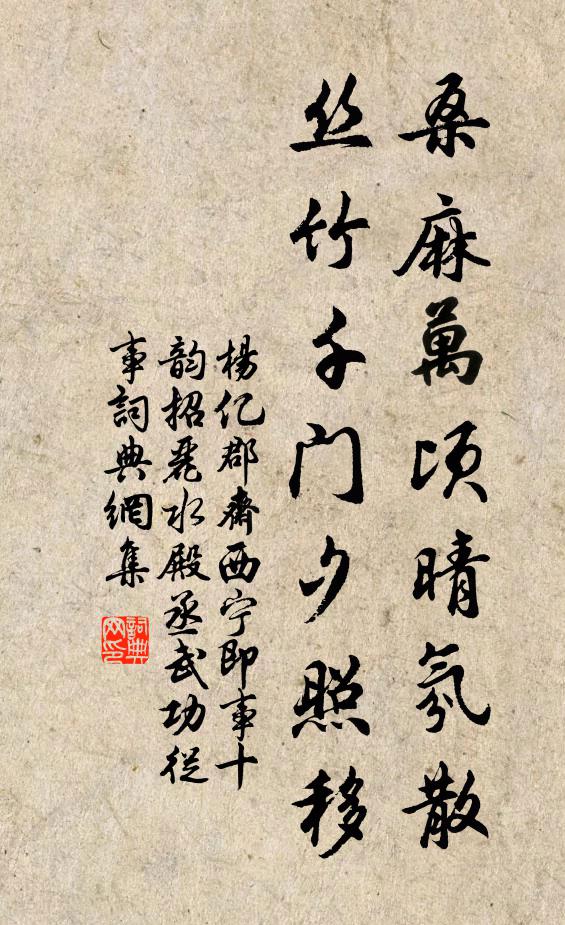 桑麻萬頃晴氛散
丝竹千门夕照移
楊亿郡齋西宁即事十
韵招丽水殿丞武功從
事詞典網集
詞典网印